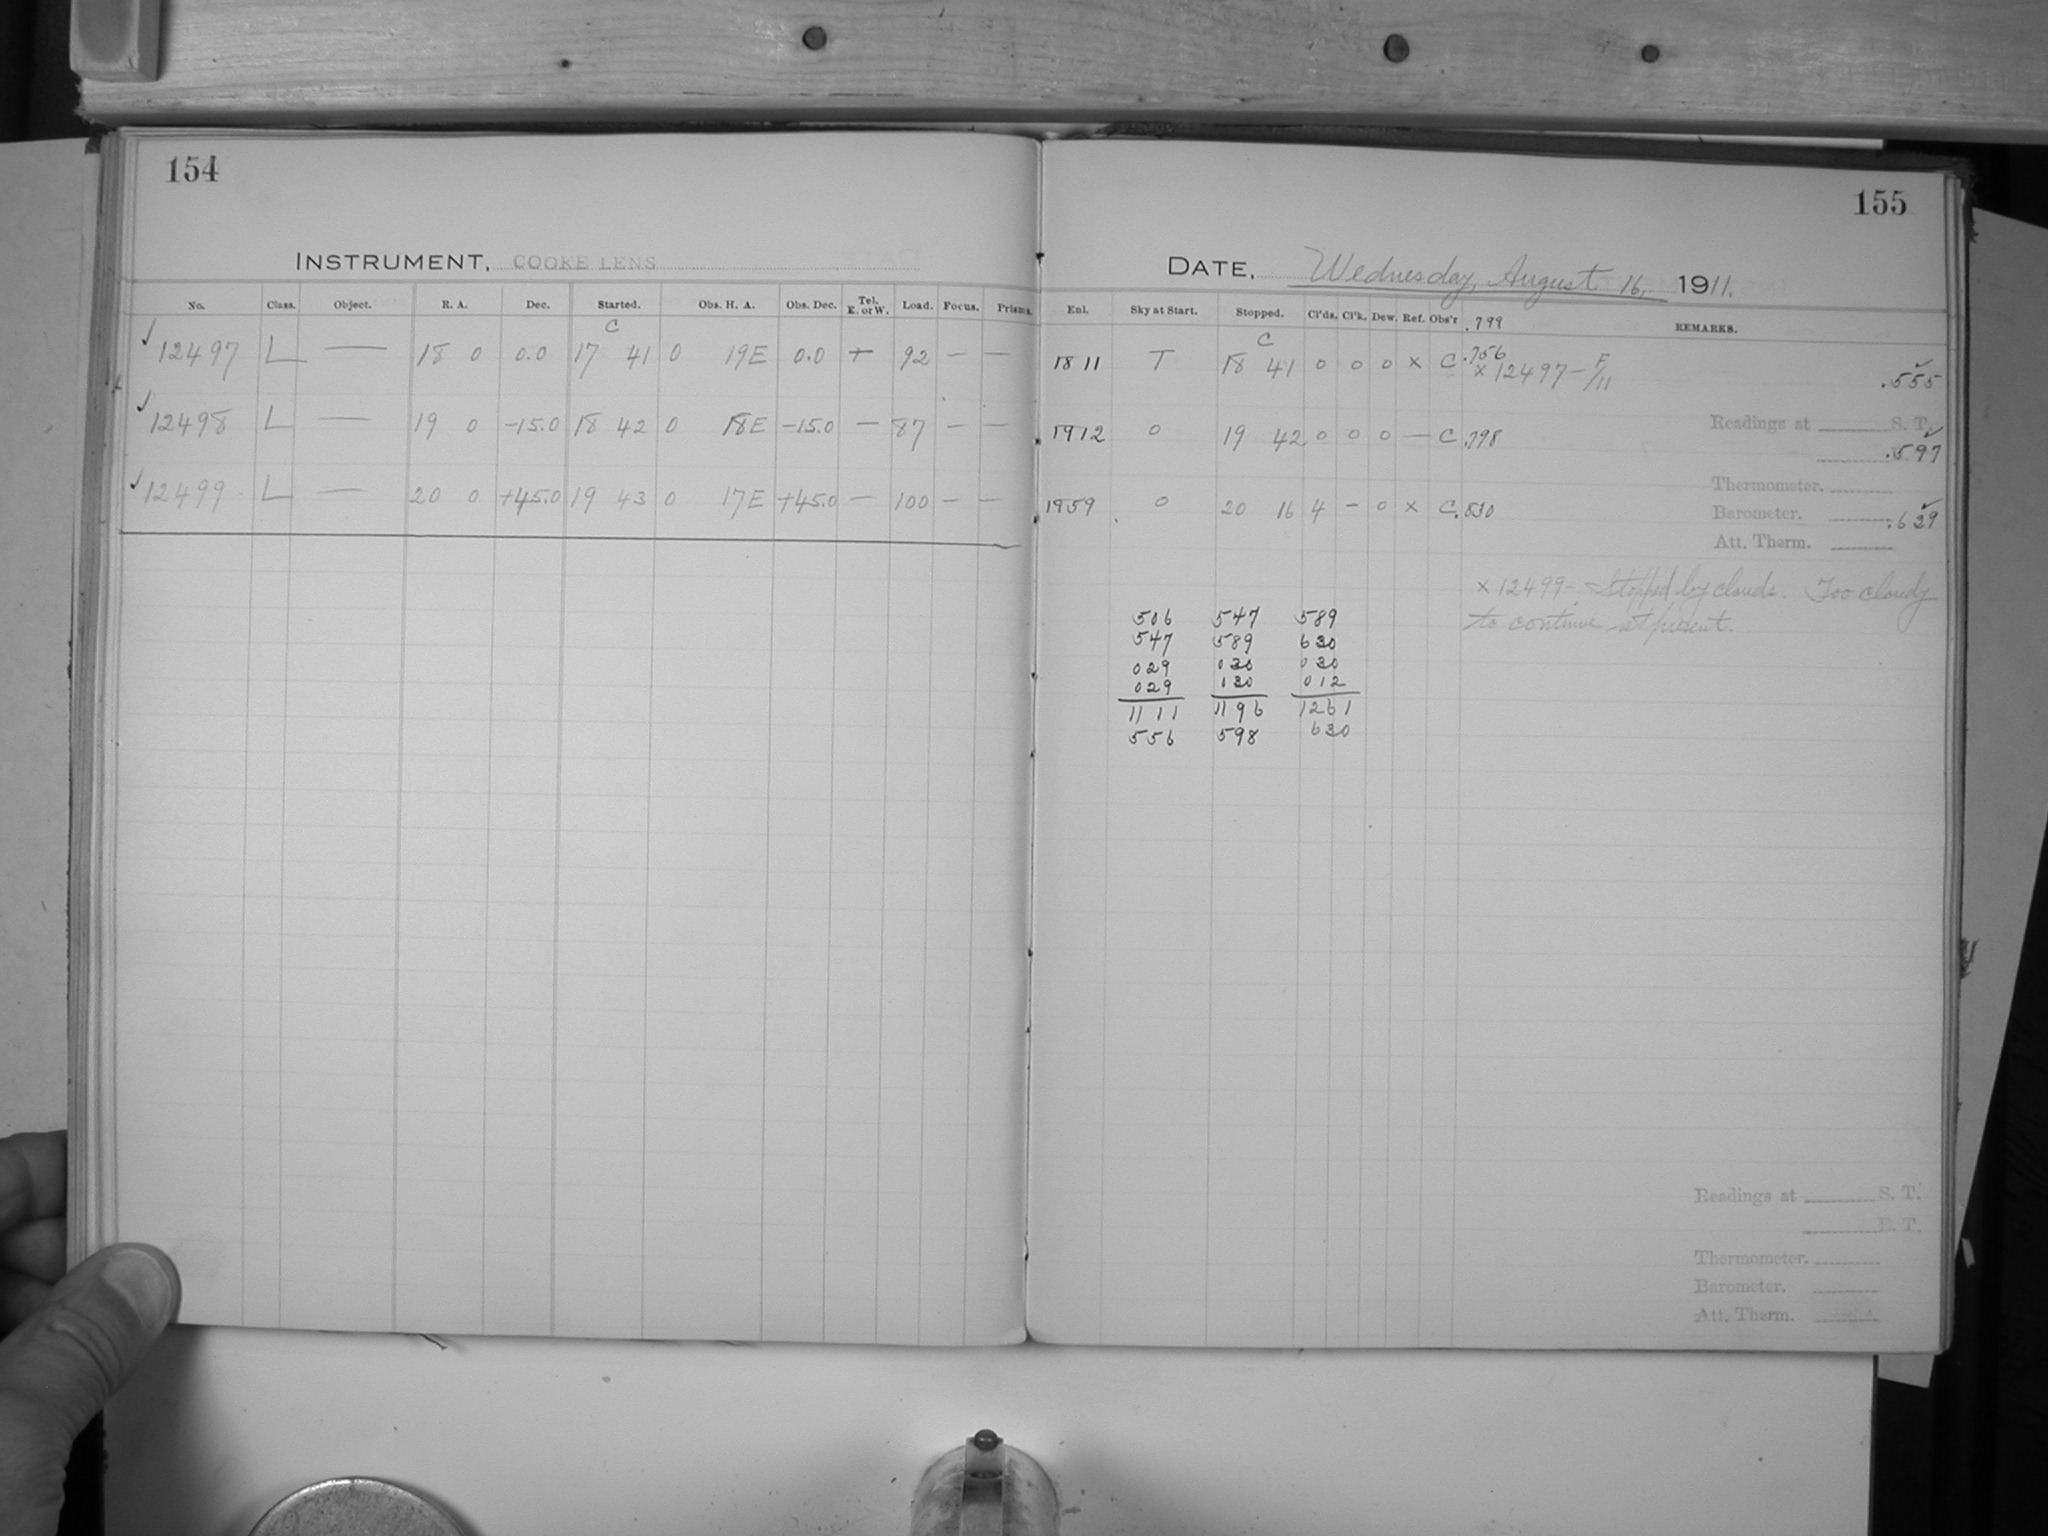 154
INSTRUMENT, COOKE LENS
No. Class. Object. R. A. Dec. Started. Obs. H. A. Obs. Dec. Tel. E. or W. Load. Focus. Prisms.
C
12497 L — 18 0 0.0 17 41 0 19E 0.0 + 92 — —
12498 L — 19 0 -15.0 18 42 0 18E -15.0 — 87 — —
12499 L — 20 0 +45.0 19 43 0 17E +45.0 — 100 — —
155
DATE, Wednesday, August 16, 1911.
Enl. Sky at Start. Stopped. Cl'ds. Cl'k. Dew. Ref. Obs'r .799 REMARKS.
C
.756
1811 T 18 41 0 0 0 x C x 12497 — F/11 .555
Readings at S. T.
1912 0 19 42 0 0 0 — C .798 .597
Thermometer.
1959 0 20 16 4 - 0 x C .830 Barometer. .629
Att. Therm.
x 12499 - Stopped by clouds. Too cloudy
to continue at present.
506 547 589
547 589 630
029 030 030
029 030 012
1111 1196 1261
556 598 630
Readings at S. T.
E. T.
Thermometer.
Barometer.
Att. Therm.